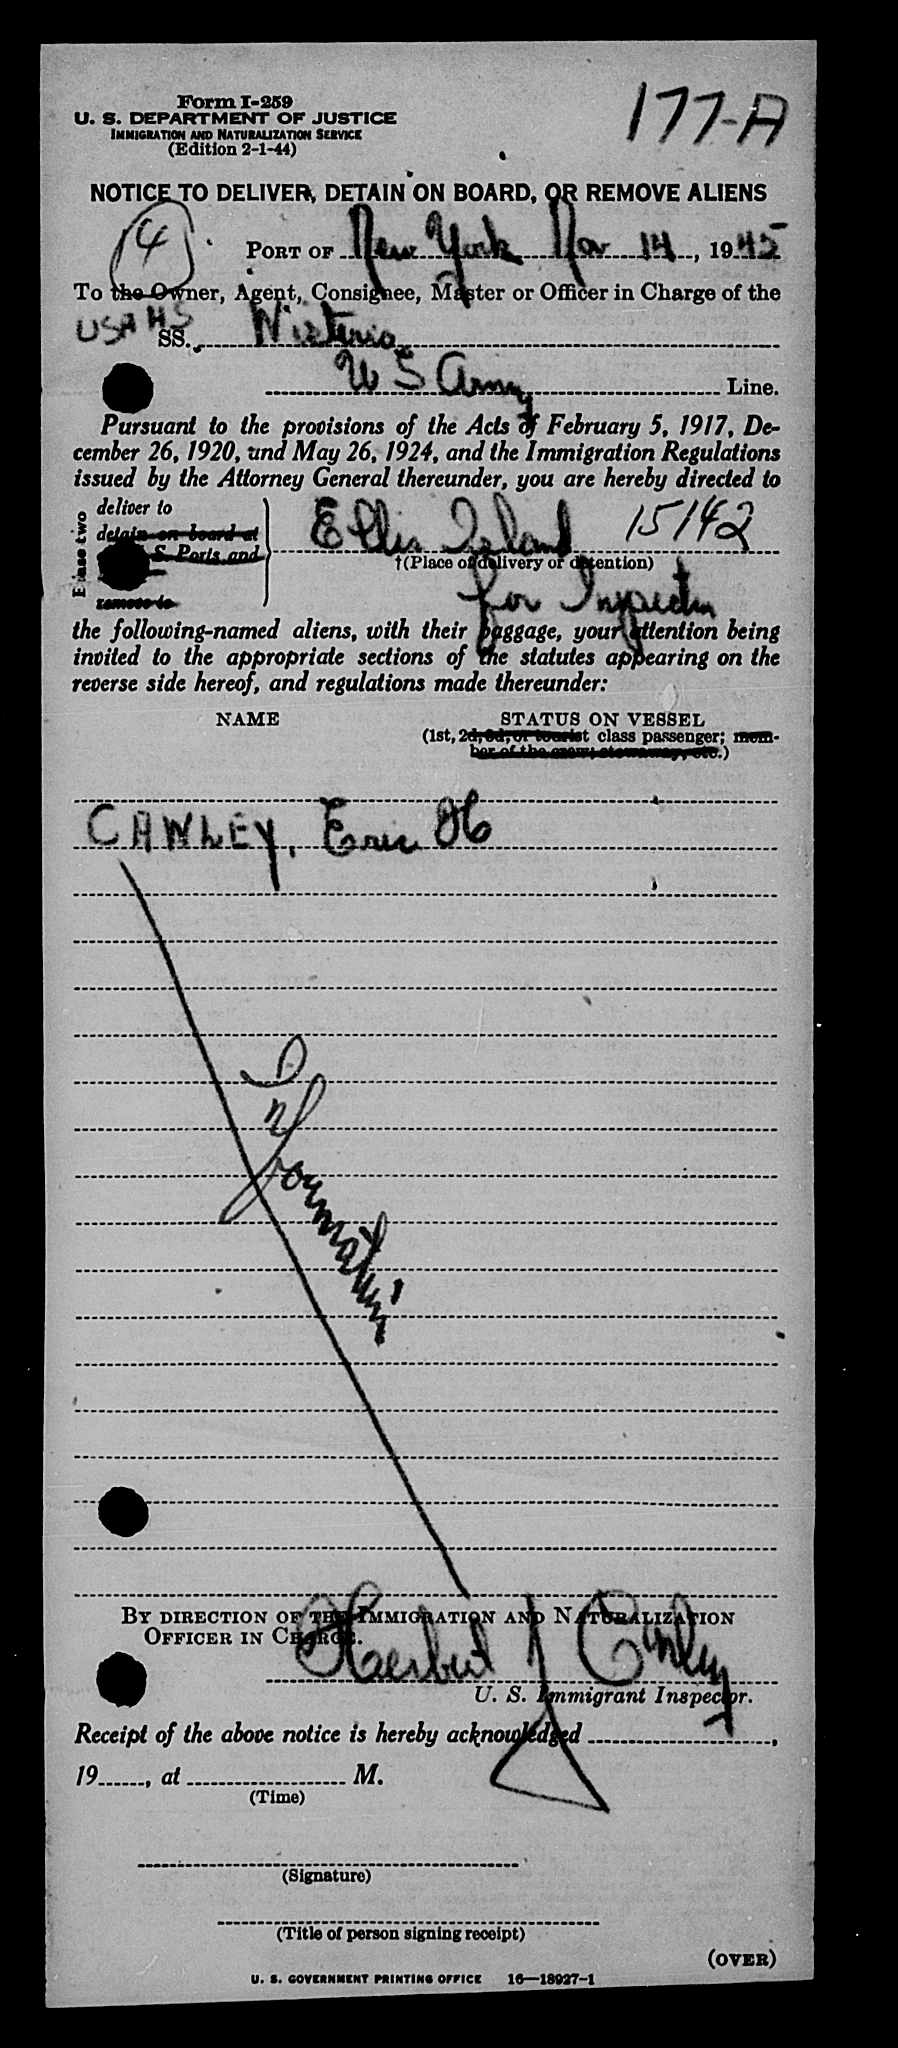 Form I-259
177-A
U. S. DEPARTMENT OF JUSTICE
IMMIGRATION AND NATURALIZATION SERVICE
(Edition 2-1-44)
NOTICE TO DELIVER, DETAIN ON BOARD, OR REMOVE ALIENS
4
PORT OF New York Nov 14, 1945
To the Owner, Agent, Consignee, Master or Officer in Charge of the
USAHS SS. Wisteria
U S Army Line.
Pursuant to the provisions of the Acts of February 5, 1917, De-
cember 26, 1920, and May 26, 1924, and the Immigration Regulations
issued by the Attorney General thereunder, you are hereby directed to
Erase two
deliver to
detain on board at
S. Ports, and
remove to
Ellis Island 15142
†(Place of delivery or detention)
for Inspectn
the following-named aliens, with their baggage, your attention being
invited to the appropriate sections of the statutes appearing on the
reverse side hereof, and regulations made thereunder:
NAME STATUS ON VESSEL
(1st, 2d, 3d, or tourist class passenger; mem-
ber of the crew; stowaway, etc.)
CAWLEY, Eric H
Information
BY DIRECTION OF THE IMMIGRATION AND NATURALIZATION
OFFICER IN CHARGE.
Herbert J
U. S. Immigrant Inspector.
Receipt of the above notice is hereby acknowledged ,
19 , at M.
(Time)
(Signature)
(Title of person signing receipt)
(OVER)
U. S. GOVERNMENT PRINTING OFFICE 16—18927-1